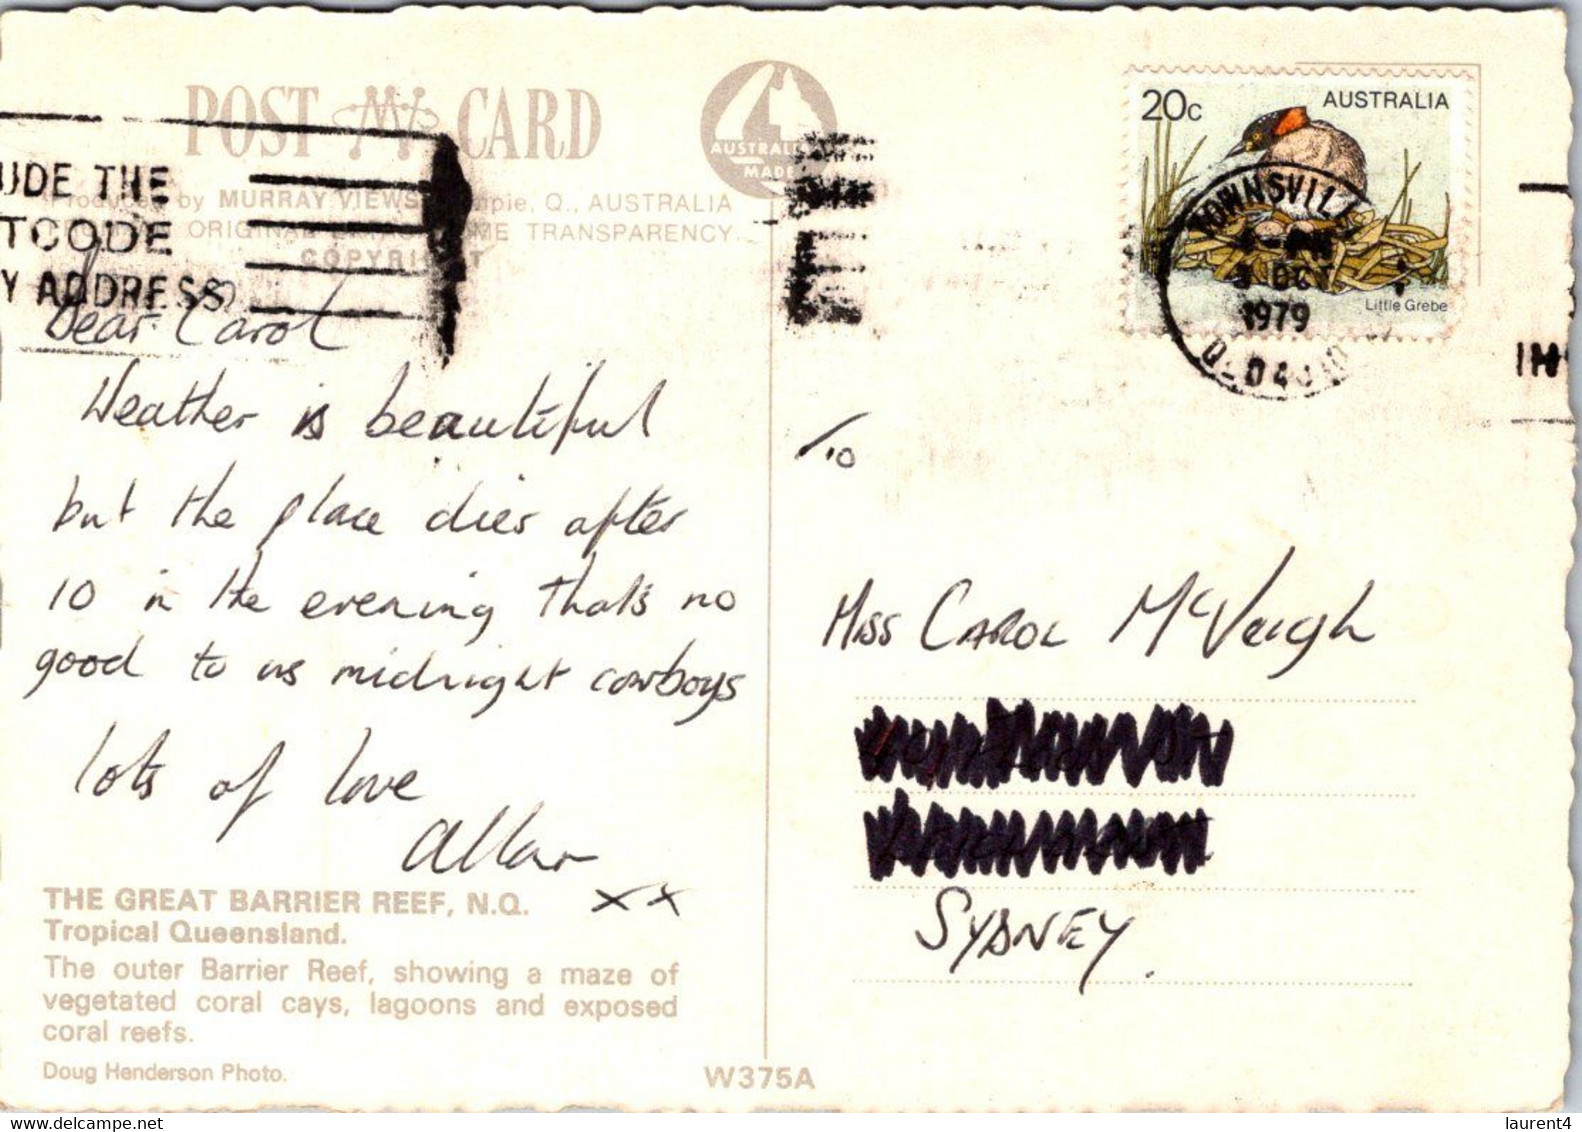 POST CARD
AUSTRALIA
MADE
Produced by MURRAY VIEWS, Gympie, Q., AUSTRALIA
ORIGINAL TRANSPARENCY.
COPYRIGHT
UDE THE
TCODE
Y ADDRESS
20c AUSTRALIA
Little Grebe
TOWNSVILLE
OCT
1979
Dear Carol
Weather is beautiful
but the place dies after
10 in the evening that's no
good to us midnight cowboys
lots of love
Allan
xx
Miss CAROL McVeigh
SYDNEY.
THE GREAT BARRIER REEF, N.Q.
Tropical Queensland.
The outer Barrier Reef, showing a maze of
vegetated coral cays, lagoons and exposed
coral reefs.
Doug Henderson Photo.
W375A
delcampe.net
laurent4